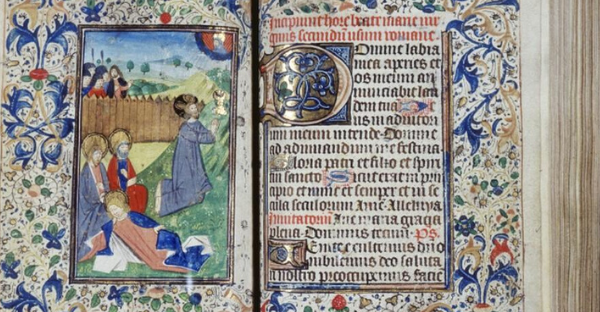 Incipiunt hore beate marie vir
ginis secundū usum romane
Domine labia
mea aperies et
os meum an
nunciabit lau
dem tuā De
us in adiutori
um meum intende Domine
ad adiuuandum me festina
Gloria patri et filio et spiri
tui sancto Sicut erat in prin
cipio et nunc et semper et in se
cula seculorum Amē Alleluya
Inuitatoriū Aue maria gracia
plena Dominus tecum Ps
Uenite exultemus dño
iubilemus deo saluta
ri nostro preoccupemus faciē